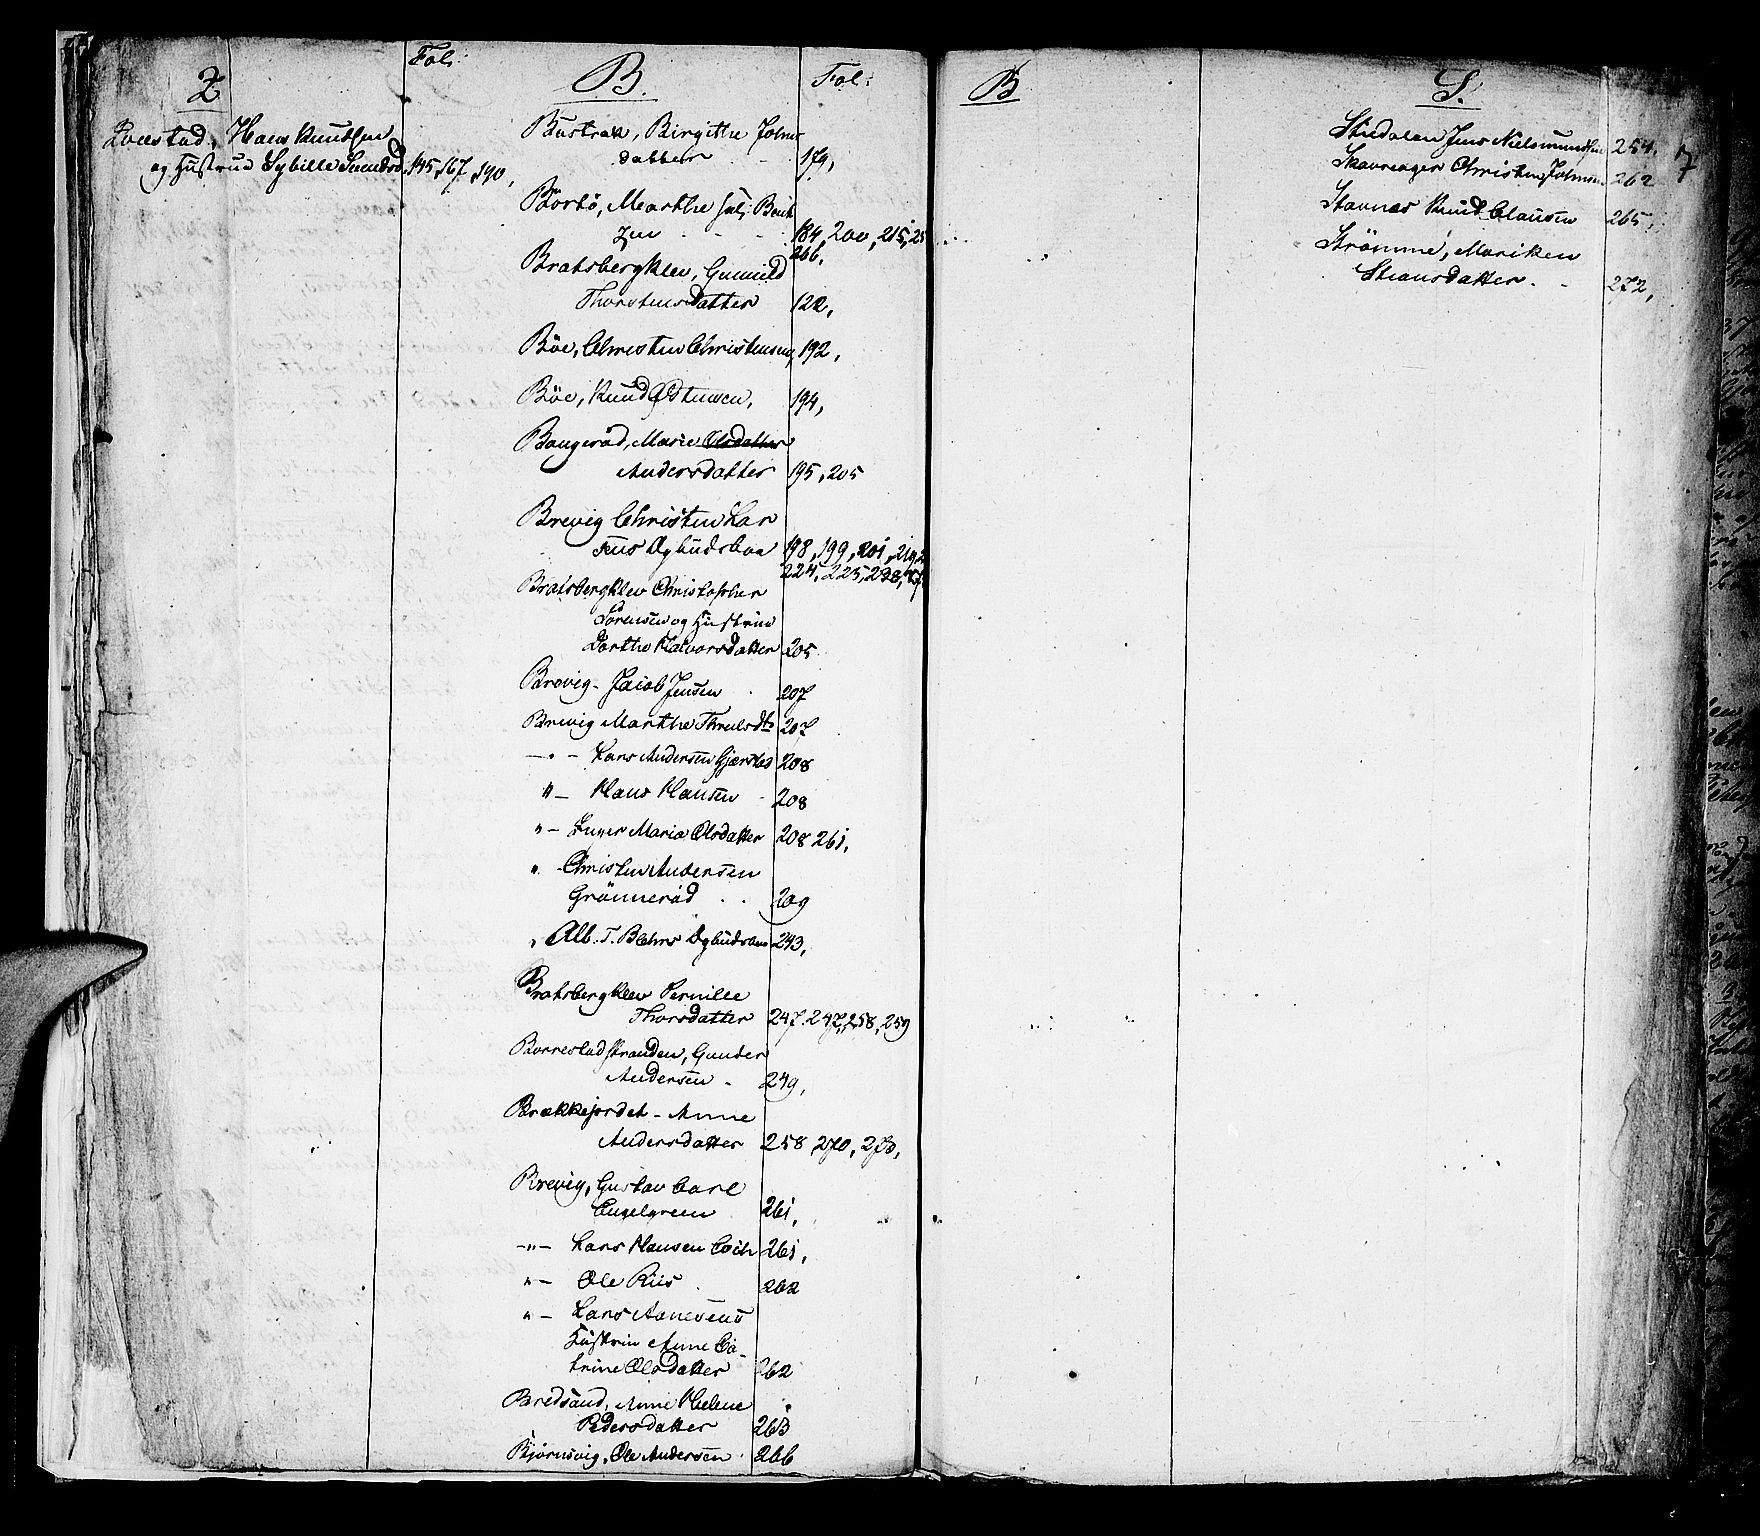 Fol:
Hans Knudsen
og Hustrue Sybille 145, 167, 190,
B. Fol:
Birgithe Johns
datter 179,
Marthe
184, 200, 215,
266,
Bratsbergklev, Gunnild
Thorstensdatter 122,
Böe, Christen Christensen, 192,
Böe, Knud Østensen, 194,
Baugeröd, Marie Olsdatter
Andersdatter 195, 205
Brevig Christen Lar
sens Opbudsboe 198, 199, 201, 219,
224, 225, 238,
Bratsbergklev Christopher
Sörensen og Hustrue
Dorthe Halvorsdatter 205
Brevig - Jacob Jensen 207
Brevig Marthe 207
— " – Lars Andersen Gjerstad 208
" — Hans Hansen 208
" — Inger Maria Olsdatter 208 261,
" - Christen Andersen
Grönneröd 209
" Alb. T. Blehrs Opbudsboe 243,
Bratsbergklev Pernille
Thorsdatter 247. 247, 258, 259
Borrestadstranden, Gunder
Andersen - 249,
Brækkejordet - Anne
Andersdatter 258, 270, 273,
Brevig, Gustav Carl
Engelgreen 261,
—"— Lars Hansen 261,
" — Ole Riis 262
" — Lars Aanesens
Hustrue Anne Ca-
trine Olsdatter 262
Bredsand, Anne Helene
Pedersdatter 263
Bjørnsvig, Ole Andersen 266
B
S.
7
Stidalen Jens 254,
Christen Johnsen 262
Stavnes Knud Clausen 265,
Strömme, Mariken
Steansdatter. - 272,